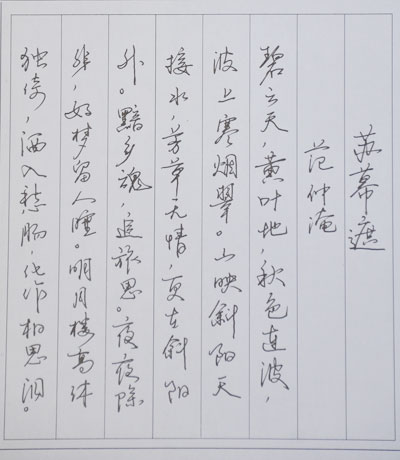 苏幕遮
范仲淹
碧云天,黄叶地,秋色连波,
波上寒烟翠。山映斜阳天
接水,芳草无情,更在斜阳
外。黯乡魂,追旅思。夜夜除
非,好梦留人睡。明月楼高休
独倚,酒入愁肠,化作相思泪。